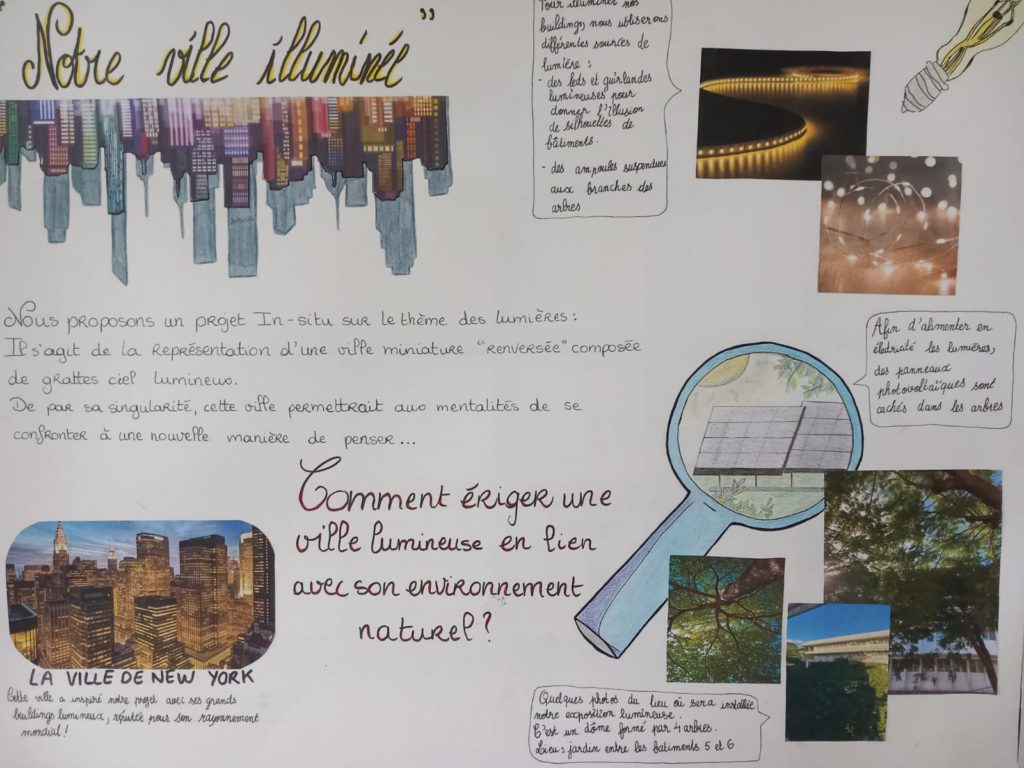 Notre ville illuminée"
Pour illuminer nos
buildings, nous utiliserons
différentes sources de
lumière :
- des leds et guirlandes
lumineuses pour
donner l'illusion
de silhouettes de
bâtiments.
- des ampoules suspendues
aux branches des
arbres
Nous proposons un projet In-situ sur le thème des lumières :
Il s'agit de la représentation d'une ville miniature "renversée" composée
de grattes ciel lumineux.
De par sa singularité, cette ville permettrait aux mentalités de se
confronter à une nouvelle manière de penser...
Afin d'alimenter en
électricité les lumières,
des panneaux
photovoltaïques sont
cachés dans les arbres
Comment ériger une
ville lumineuse en lien
avec son environnement
naturel ?
LA VILLE DE NEW YORK
Cette ville a inspiré notre projet avec ses grands
buildings lumineux, réputée pour son rayonnement
mondial !
Quelques photos du lieu où sera installée
notre exposition lumineuse.
C'est un dôme formé par 4 arbres.
Lieu : jardin entre les batiments 5 et 6